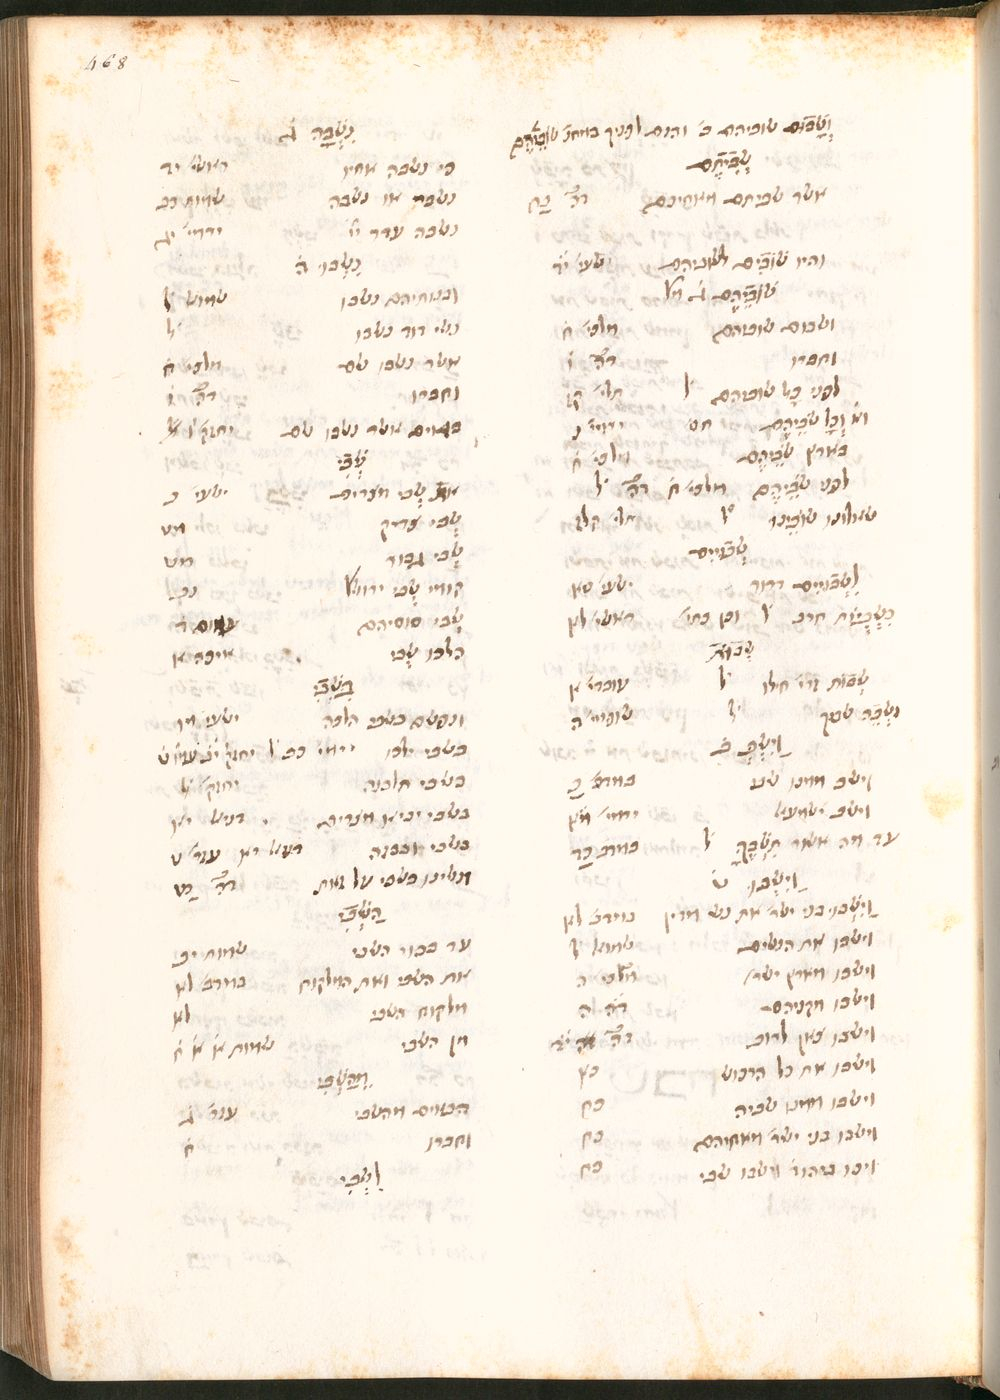 468
וְשָׁבוּם שוביהם ב׳ והנם לפניך במחנ׳ שׁוֹבֵיהֶם
שְׁבִיתֶם
אשר שביתם מאחיכם דה׳ ב כח
והיו שׁוֹבִים לשוביהם ישעי׳ יד
שׁוֹבֵיהֶם ג׳ מל׳
ושבום שוביהם מלכי׳ ח
וחברו דה׳ ו
לפני כל שוביהם ל׳ תלי׳ קו
וא׳ וְכָל שֹׁבֵיהֶם חס׳ ירמי׳ נ
בארץ שֹׁבֵיהֶם מלכי׳ ח
לפני שֹׁבֵיהֶם מלכי׳ ח דה׳ ל׳
שאלונו שׁוֹבֵינוּ ל׳ תלי׳ קלז
שְׁבוּיִים
לִשְׁבוּיִים דרור ישעי׳ סא
כִּשְׁבֻיוֹת חרב ל׳ וכן כתי׳ בראשי׳ לא
שְׁבוֹת
שְׁבוֹת זרי׳ חילו ל׳ עובדי׳ א
וּשֲׁבֵה שביך ל׳ שופטי׳ ה
וַיִּשְׁבְּ ב׳
וישב ממנו שבי במדב׳ כא
וישב ישמעאל ירמי׳ מא
עד מה אשור תִּשְׁבֶּךָּ ל׳ במדב׳ כד
וַיִּשְׁבּוּ ט׳
וַיִּשְׁבּוּ בני ישר׳ את נשי מדין במדב׳ לא
וישבו את הנשים שמואל ל׳
וישבו מארץ ישר׳ מלכי׳ ה
וישבו מקניהם דה׳ ה
וישבו צאן לרוב דה׳ יד
וישבו את כל הרכוש כא
וישבו ממנו שביה כח
וישבו בני ישר׳ מאחיהם כח
ויכו ביהוד׳ וישבו שבי כח
נִשְׁבָּה ג׳
כי נשבה אחיו בראשי׳ יד
נשבר או נשבה שמות כב
נשבה עדר יי׳ ירמי׳ יג
נִשְׁבּוּ ה׳
ובנותיהם נשבו שמוא׳ ל
נשי דוד נשבו ל׳
אשר נשבו שם מלכי׳ ח
וחברו דה׳ ו
בגוים אשר נשבו שם יחזק׳ ו
שְׁבִי
את שְׁבִי מצרים ישעי׳ כ
שְׁבִי צדיק מט
שְׁבִי גבור מט
קומי שְׁבִי ירוש׳ נב
שְׁבִי סוסיכם עמוס ד
הלכו שֶׁבִי איכה א
בַשְּׁבִי
ונפשם בשבי הלכה ישעי׳ מו
בשבי ילכו ירמי׳ כב ל יחזק׳ יב
בשבי תלכנה יחזק׳ ל׳
בשבי יביא מצרים דניאל יא
בשבי ובבזה דניאל יא עזר׳ ט
ונשינו בשבי על זאת דה׳ כט
הַשְּׁבִי
עד בכור השבי שמות יב
את השבי ואת המלקוח במדב׳ לא
מלקוח השבי לא
מן השבי
מִשְּׁבִי
הבאים מהשבי עזר׳ ג
וחברו ח
לַשְּׁבִי